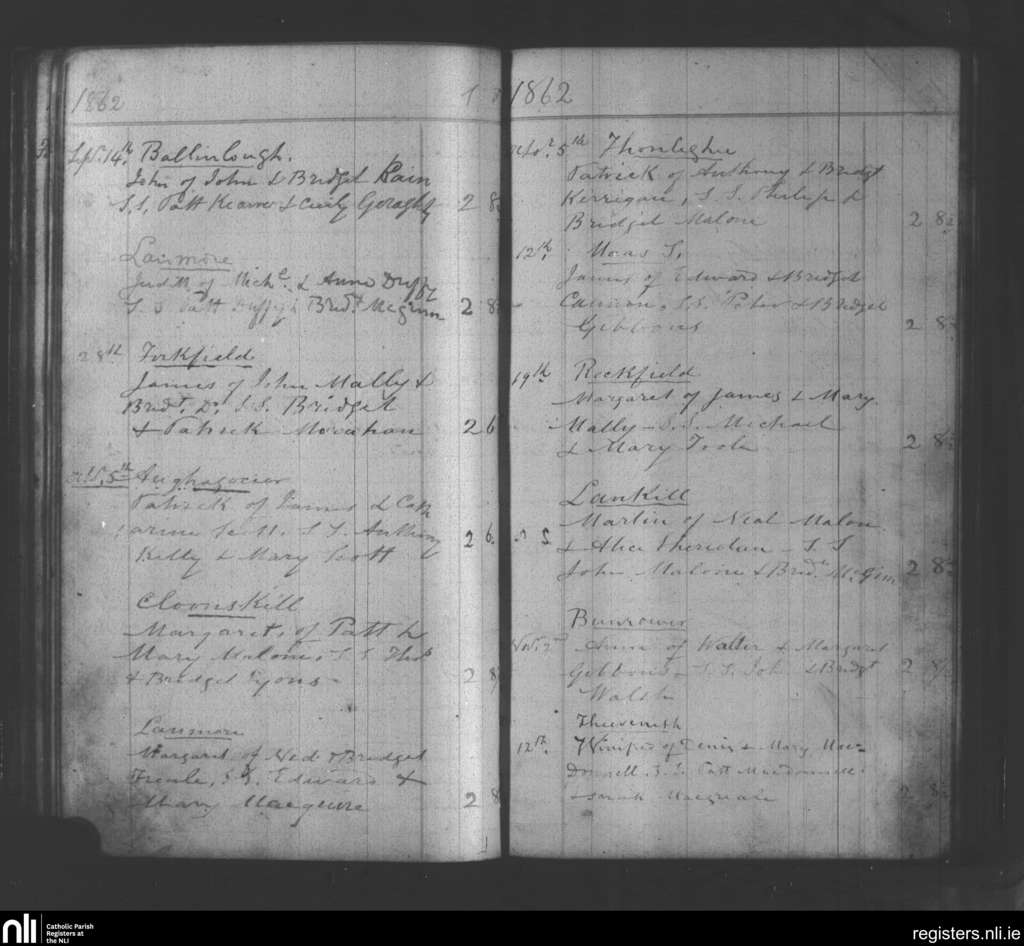 1862
Sept. 14th. Ballinlough.
John of John & Bridget Kain
S.S. Patt Kearns & Geraghty 2
Lanmore
Judith of Michl. & Anne Duffy
S. S Patt Duffy & Bridt. McGinn 2
28th Forkfield
James of John Mally &
Bridt. Do. S.S. Bridget
& Patrick 2 6
Oct. 5th Aughagower
Patrick of James & Cath
arine S. S Anthony 2 6.
Kelly & Mary Scott
Cloonskill
Margaret, of Patt &
Mary Malone, S S Thos
& Bridget Lyons 2
Lanmore
Margaret of Ned & Bridget
S.S. Edward &
Mary Macguire 2
1862
Octor. 5th
Patrick of Anthony & Bridgt
Kerrigan, S. S. Philip &
Bridget Malone 2
12th.
James of Edward & Bridget
Cannon, S.S. Peter & Bridget
Gibbons 2
19th. Rockfield
Margaret of James & Mary
Mally - S. S. Michael
& Mary Toole 2
Lankill
Martin of Neal Malon
& Alice Sheridan - S S
John Malone & Bridt. McGinn 2
Bunrower
Nov. 2nd Anne of Walter & Margaret
Gibbons - S. S. John & Bridgt 2
Walsh
12th. of Denis & Mary Mac-
Donnell. S. S. Patt MacDonnell
& Sarah 2
nli
Catholic Parish
Registers at
the NLI
registers.nli.ie